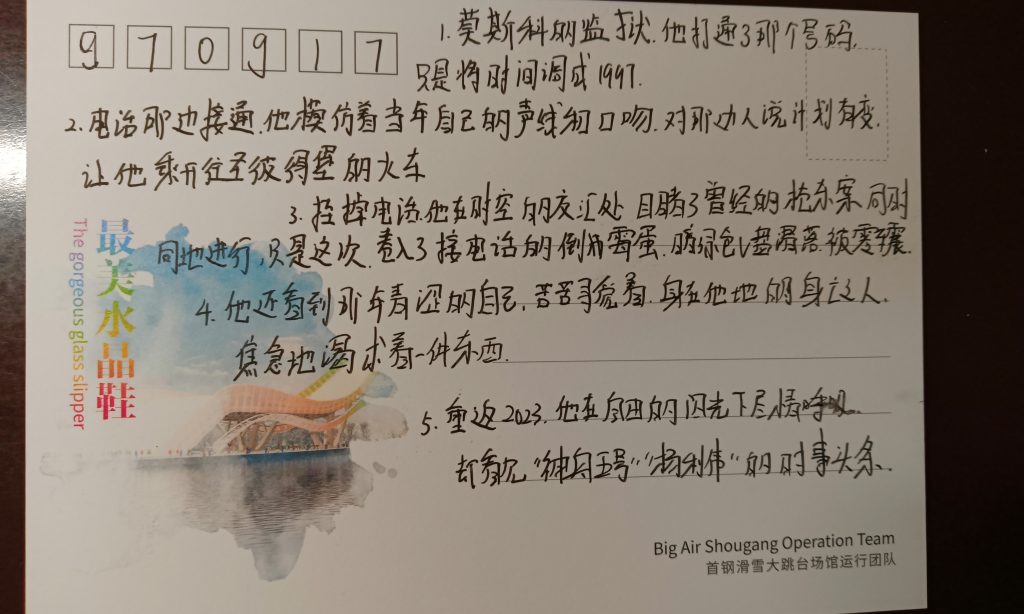 970917
1. 莫斯科的监狱. 他打通了那个号码,
只是将时间调成1997.
2. 电话那边接通. 他模仿着当年自己的声线和口吻. 对那边人说计划有变.
让他乘开往圣彼得堡的火车
3. 挂掉电话. 他在时空的交汇处 目睹了曾经的抢东案 同时
同地进行, 只是这次. 卷入了接电话的倒霉蛋. 滑落 被
4. 他还看到那年青涩的自己, 苦苦寻觅着. 身在他地的身亡之人.
焦急地渴求着一件东西.
5. 重返2023. 他在自由的闪光下尽情呼吸.
却看见“神舟五号”“杨利伟”的时事头条.
最美水晶鞋
The gorgeous glass slipper
Big Air Shougang Operation Team
首钢滑雪大跳台场馆运行团队